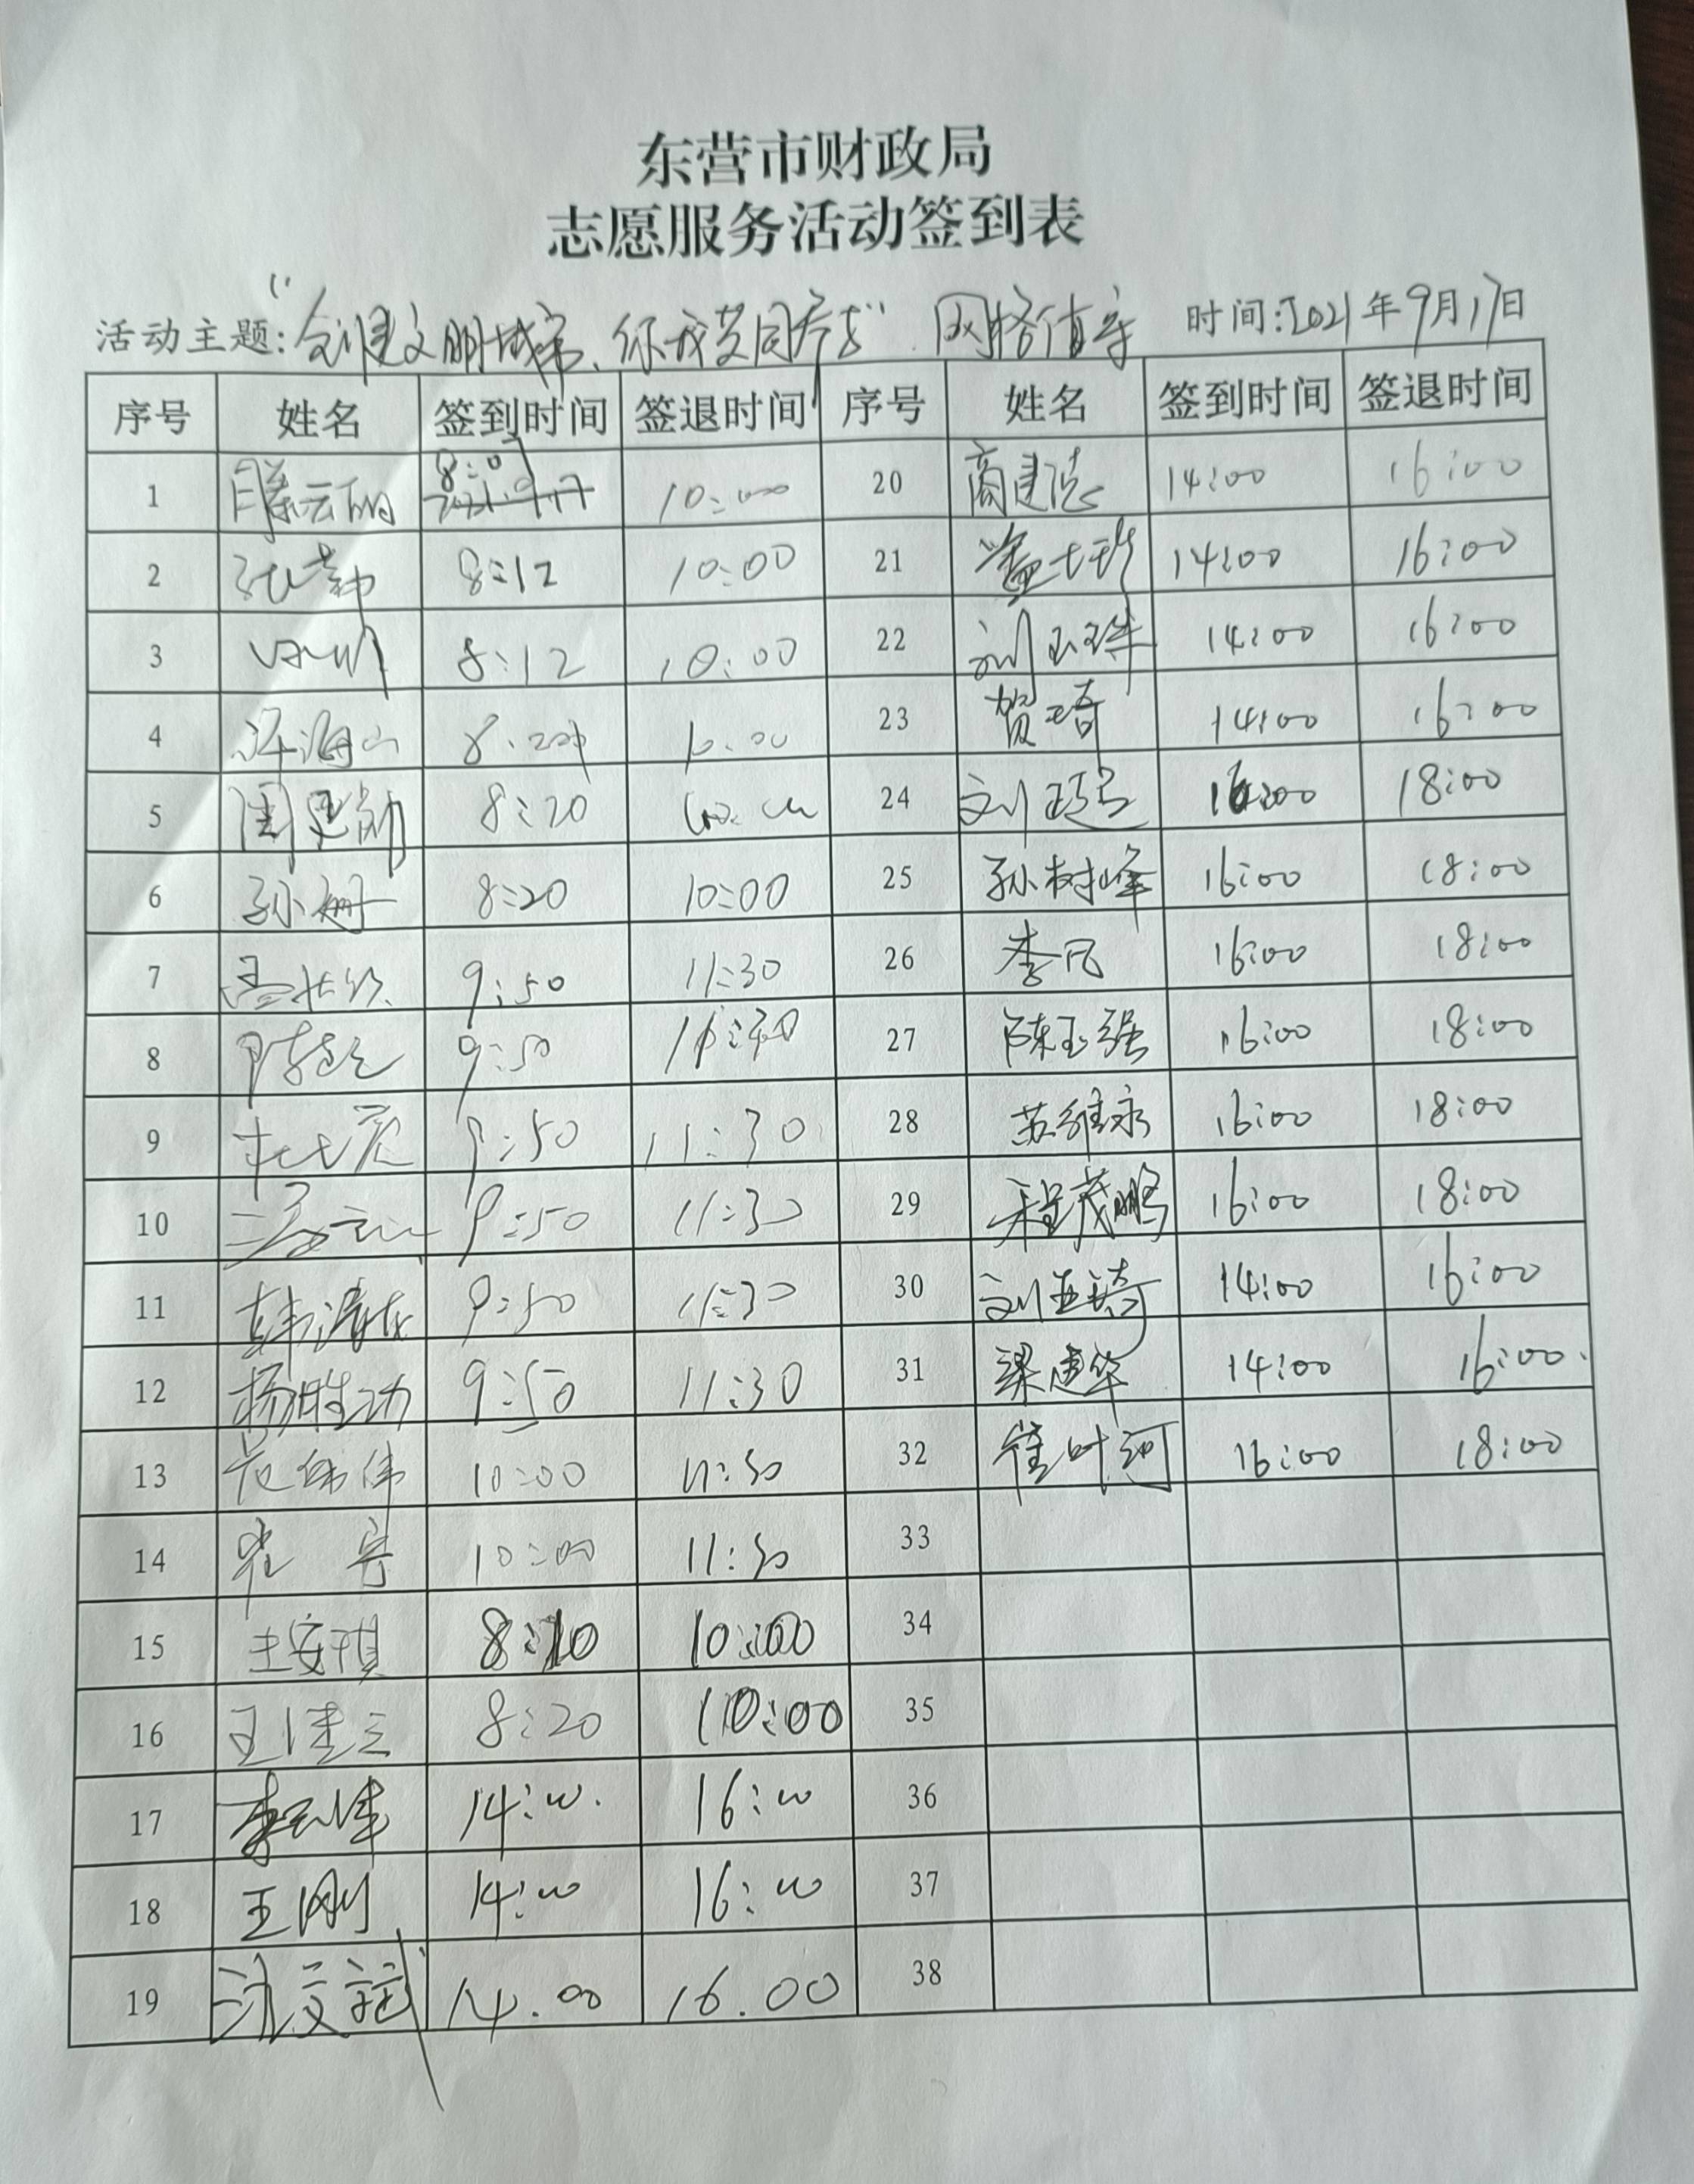 东营市财政局
志愿服务活动签到表
活动主题：“创建文明城市、你我共同参与”网格值守 时间：2021年9月17日
序号 姓名 签到时间 签退时间 序号 姓名 签到时间 签退时间
1 滕云丽 8:07 10:00 20 商建 14:00 16:00
2 张莉 8:12 10:00 21 14:00 16:00
3 8:12 10:00 22 刘玉洋 14:00 16:00
4 许海山 8:20 10:00 23 贺琦 14:00 16:00
5 周建勋 8:20 10:00 24 刘 16:00 18:00
6 孙姗 8:20 10:00 25 孙树峰 16:00 18:00
7 9:50 11:30 26 李凡 16:00 18:00
8 9:50 11:30 27 陈玉强 16:00 18:00
9 9:50 11:30 28 苏维永 16:00 18:00
10 9:50 11:30 29 程茂鹏 16:00 18:00
11 韩 9:50 11:30 30 刘亚琦 14:00 16:00
12 杨胜功 9:50 11:30 31 梁建华 14:00 16:00
13 伟 10:00 11:30 32 崔叶河 16:00 18:00
14 10:00 11:30 33
15 王安琪 8:10 10:00 34
16 王 8:20 10:00 35
17 李 14:00 16:00 36
18 王刚 14:00 16:00 37
19 文 14.00 16.00 38